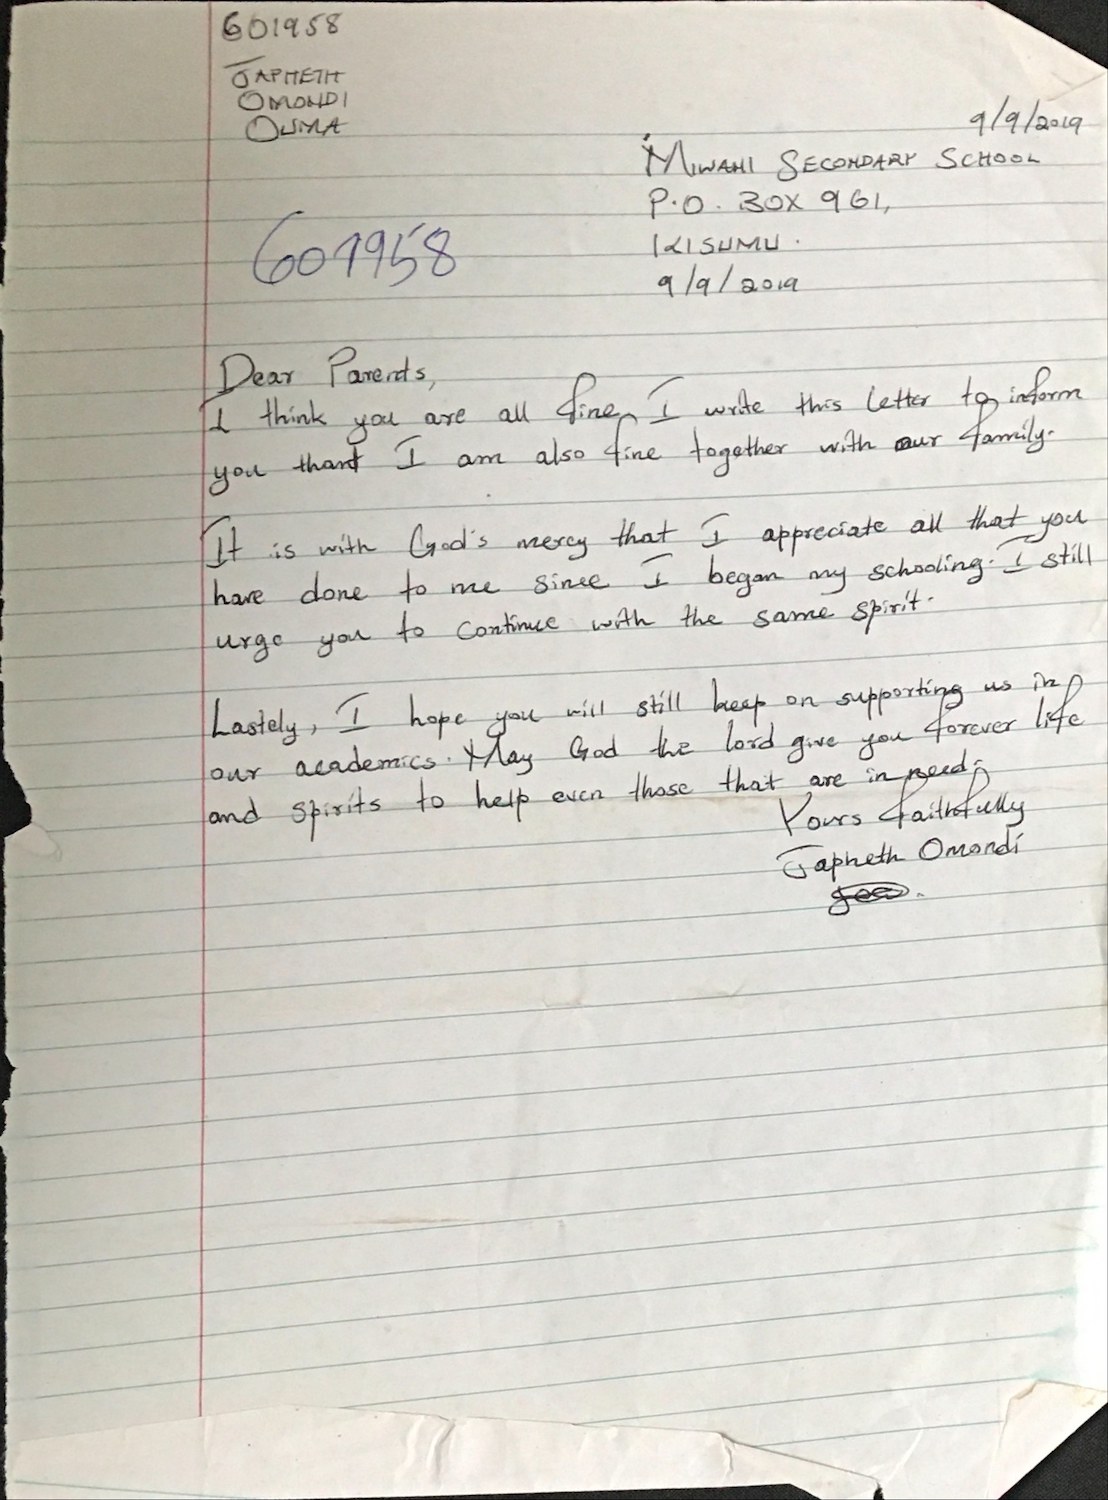 601958
JAPHETH
OMONDI
OUMA
9/9/2019
MIWANI SECONDARY SCHOOL
P.O. BOX 961,
KISUMU.
9/9/2019
601958
Dear Parents,
I think you are all fine, I write this letter to inform
you that I am also fine together with our family.
It is with God's mercy that I appreciate all that you
have done to me since I began my schooling. I still
urge you to continue with the same spirit.
Lastely, I hope you will still keep on supporting us in
our academics. May God the lord give you forever life
and spirits to help even those that are in need.
Yours faithfully
Japheth Omondi